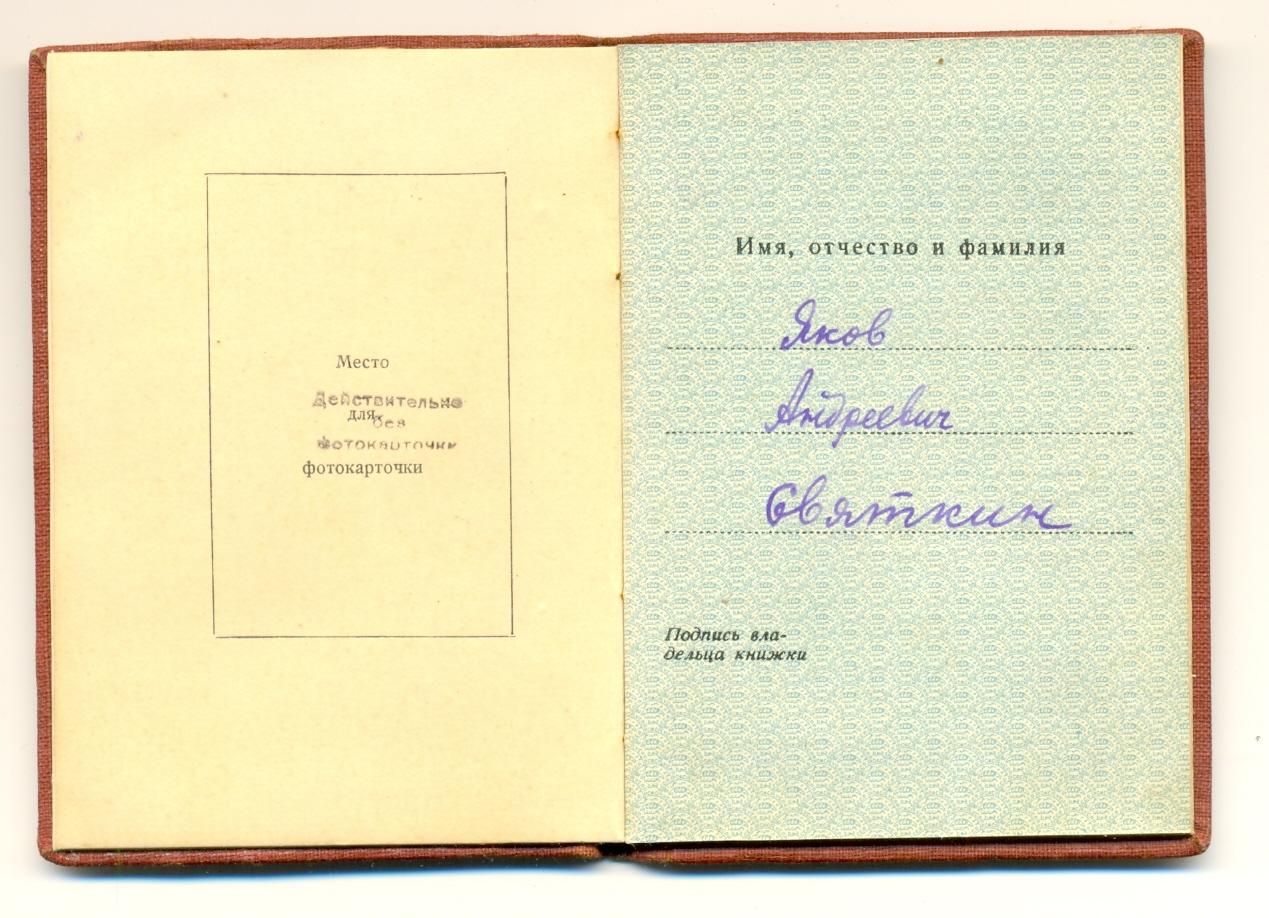 Место
Действительно
для
без
фотокарточки
фотокарточки
Имя, отчество и фамилия
Яков
Андреевич
Святкин
Подпись вла-
дельца книжки